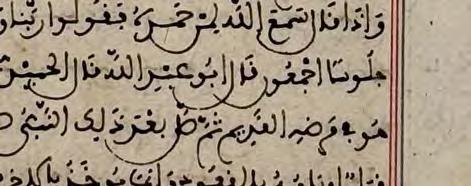 وإذا قال سمع الله لمن حمده فقولوا ربنا و
جلوسا اجمعون قال ابو عبد الله قال الحميدي
هو في مرضه القديم ثم صلى بعد ذلك النبي ص